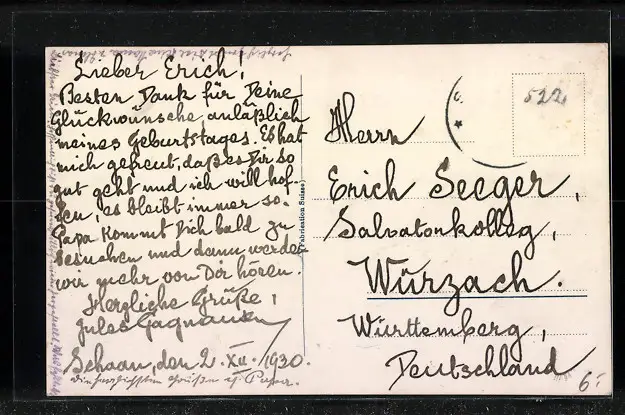 Lieber Erich!
Besten Dank für Deine
Glückwünsche, anläßlich
meines Geburtstages. Es hat
mich gefreut, daß es Dir so
gut geht und ich will hof-
fen, es bleibt immer so.
Papa kommt Dich bald zu
besuchen und dann werden
wir mehr von Dir hören.
Herzliche Grüße!
Jules
Schaan, den 2. XII. 1930.
die herzlichsten Grüße v. Papa.
(Fabrication Suisse)
522
Herrn
Erich Seeger,
Salvatorkolleg,
Würzach.
Württemberg,
Deutschland
6.-